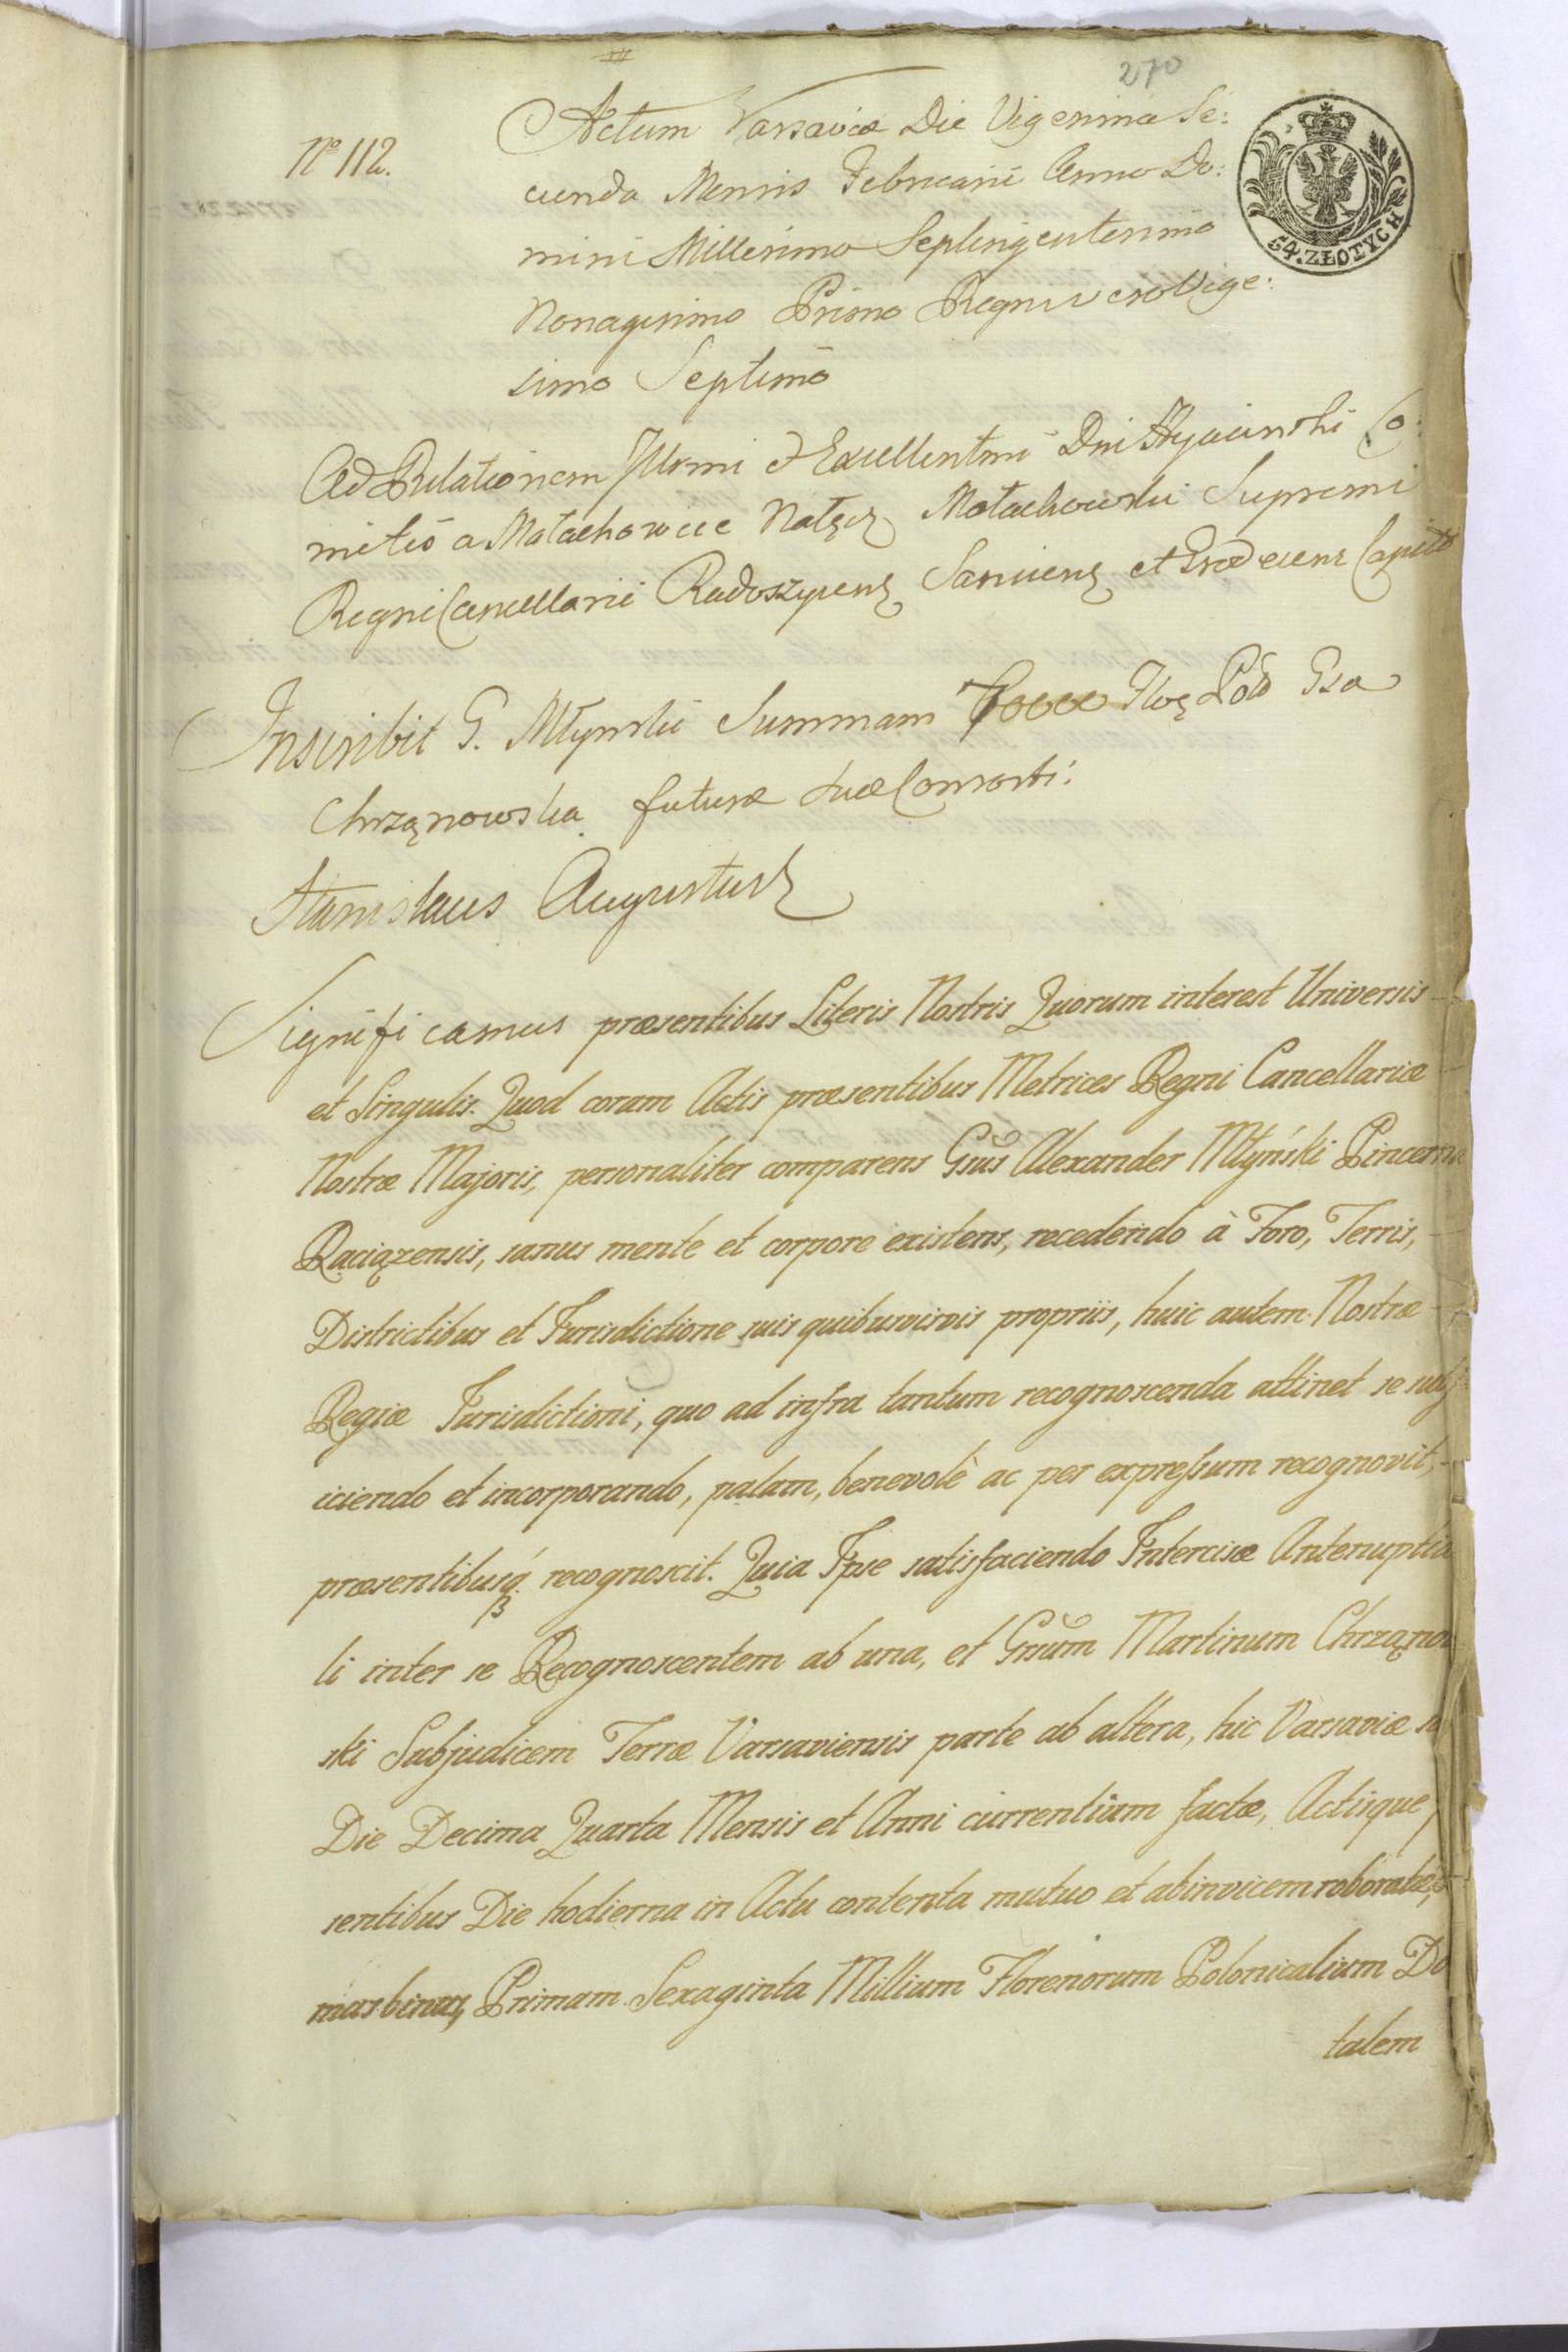 270
Nº 112.
Actum Varsaviæ Die Vigesima Se:
cunda Mensis Februarii Anno Do:
mini Millesimo Septingentesimo
Nonagesimo Primo Regni vero Vige:
simo Septimo
54. ZŁOTYCH
Ad Relationem Illrmi & Excellentmi Dni Hyacinthi Co:
mitis a Małachowice Nałęcz Małachowski Supremi
Regni Cancellarii Radoszycens Sanicens et Capit
Inscribit G. Młynski Summam Flor Pol Gsa
Chrząnowska futuræ suæ Consorti.
Stanislaus Augustus
Significamus præsentibus Literis Nostris Quorum interest Universis
et Singulis. Quod coram Actis præsentibus Metrices Regni Cancellariæ
Nostræ Majoris, personaliter comparens Gsus Alexander Młyński Pincerna
Raciązensis, sanus mente et corpore existens, recedendo à Foro, Terris,
Districtibus et Jurisdictione suis quibusvisvis propriis, huic autem Nostræ
Regiæ Jurisdictioni, quo ad infra tantum recognoscenda attinet se subj
iciendo et incorporando, palam, benevolè ac per expressum recognovit,
præsentibusq́ recognoscit. Quia Ipse satisfaciendo Intercisæ Antenuptia
li inter se Recognoscentem ab una, et Gsum Martinum Chrząnow
ski Subjudicem Terræ Varsaviensis parte ab altera, hic Varsaviæ su
Die Decima Quarta Mensis et Anni currentium factæ, Actisque
sentibus Die hodierna in Actu contenta mutuo et abinvicem roboratæ,
mas binas, Primam Sexaginta Millium Florenorum Polonicalium Do
talem